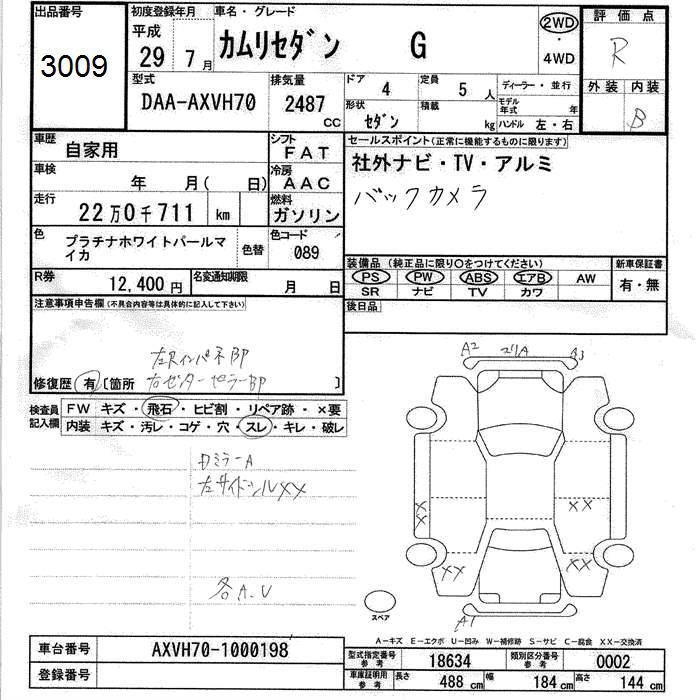 出品番号
3009
初度登録年月
平成
29 7月
車名・グレード
カムリセダン G
2WD
・
4WD
評価点
R
外装 内装
B
型式
DAA-AXVH70
排気量
2487
CC
ドア
4
定員
5 人
ディーラー・並行
形状
セダン
積載
kg
モデル年式 年
ハンドル 左・右
車歴
自家用
シフト
FAT
車検
年 月( 日)
冷房
AAC
走行
22万0千711 km
燃料
ガソリン
色
プラチナホワイトパールマイカ
色替
色コード
089
R券
12,400 円
名変通知期限
月 日
セールスポイント(正常に機能するものに限ります)
社外ナビ・TV・アルミ
バックカメラ
装備品(純正品に限り〇をつけてください)
PS PW ABS エアB AW
SR ナビ TV カワ
新車保証書
有・無
後日品
注意事項申告欄(不具合内容等は具体的に記入して下さい)
修復歴 有〔箇所
〕
検査員記入欄
FW キズ・飛石・ヒビ割・リペア跡・×要
内装 キズ・汚レ・コゲ・穴・スレ・キレ・破レ
ロミラーA
左サイドシルXX
各A.U
A2
A3
XX
XX
XX
XX
A1
スペア
A−キズ E−エクボ U−凹み W−補修跡 S−サビ C−腐食 XX−交換済
車台番号
AXVH70-1000198
登録番号
型式指定番号
参考
18634
類別区分番号
参考
0002
車庫証明用
参考
長さ
488 cm
幅
184 cm
高さ
144 cm